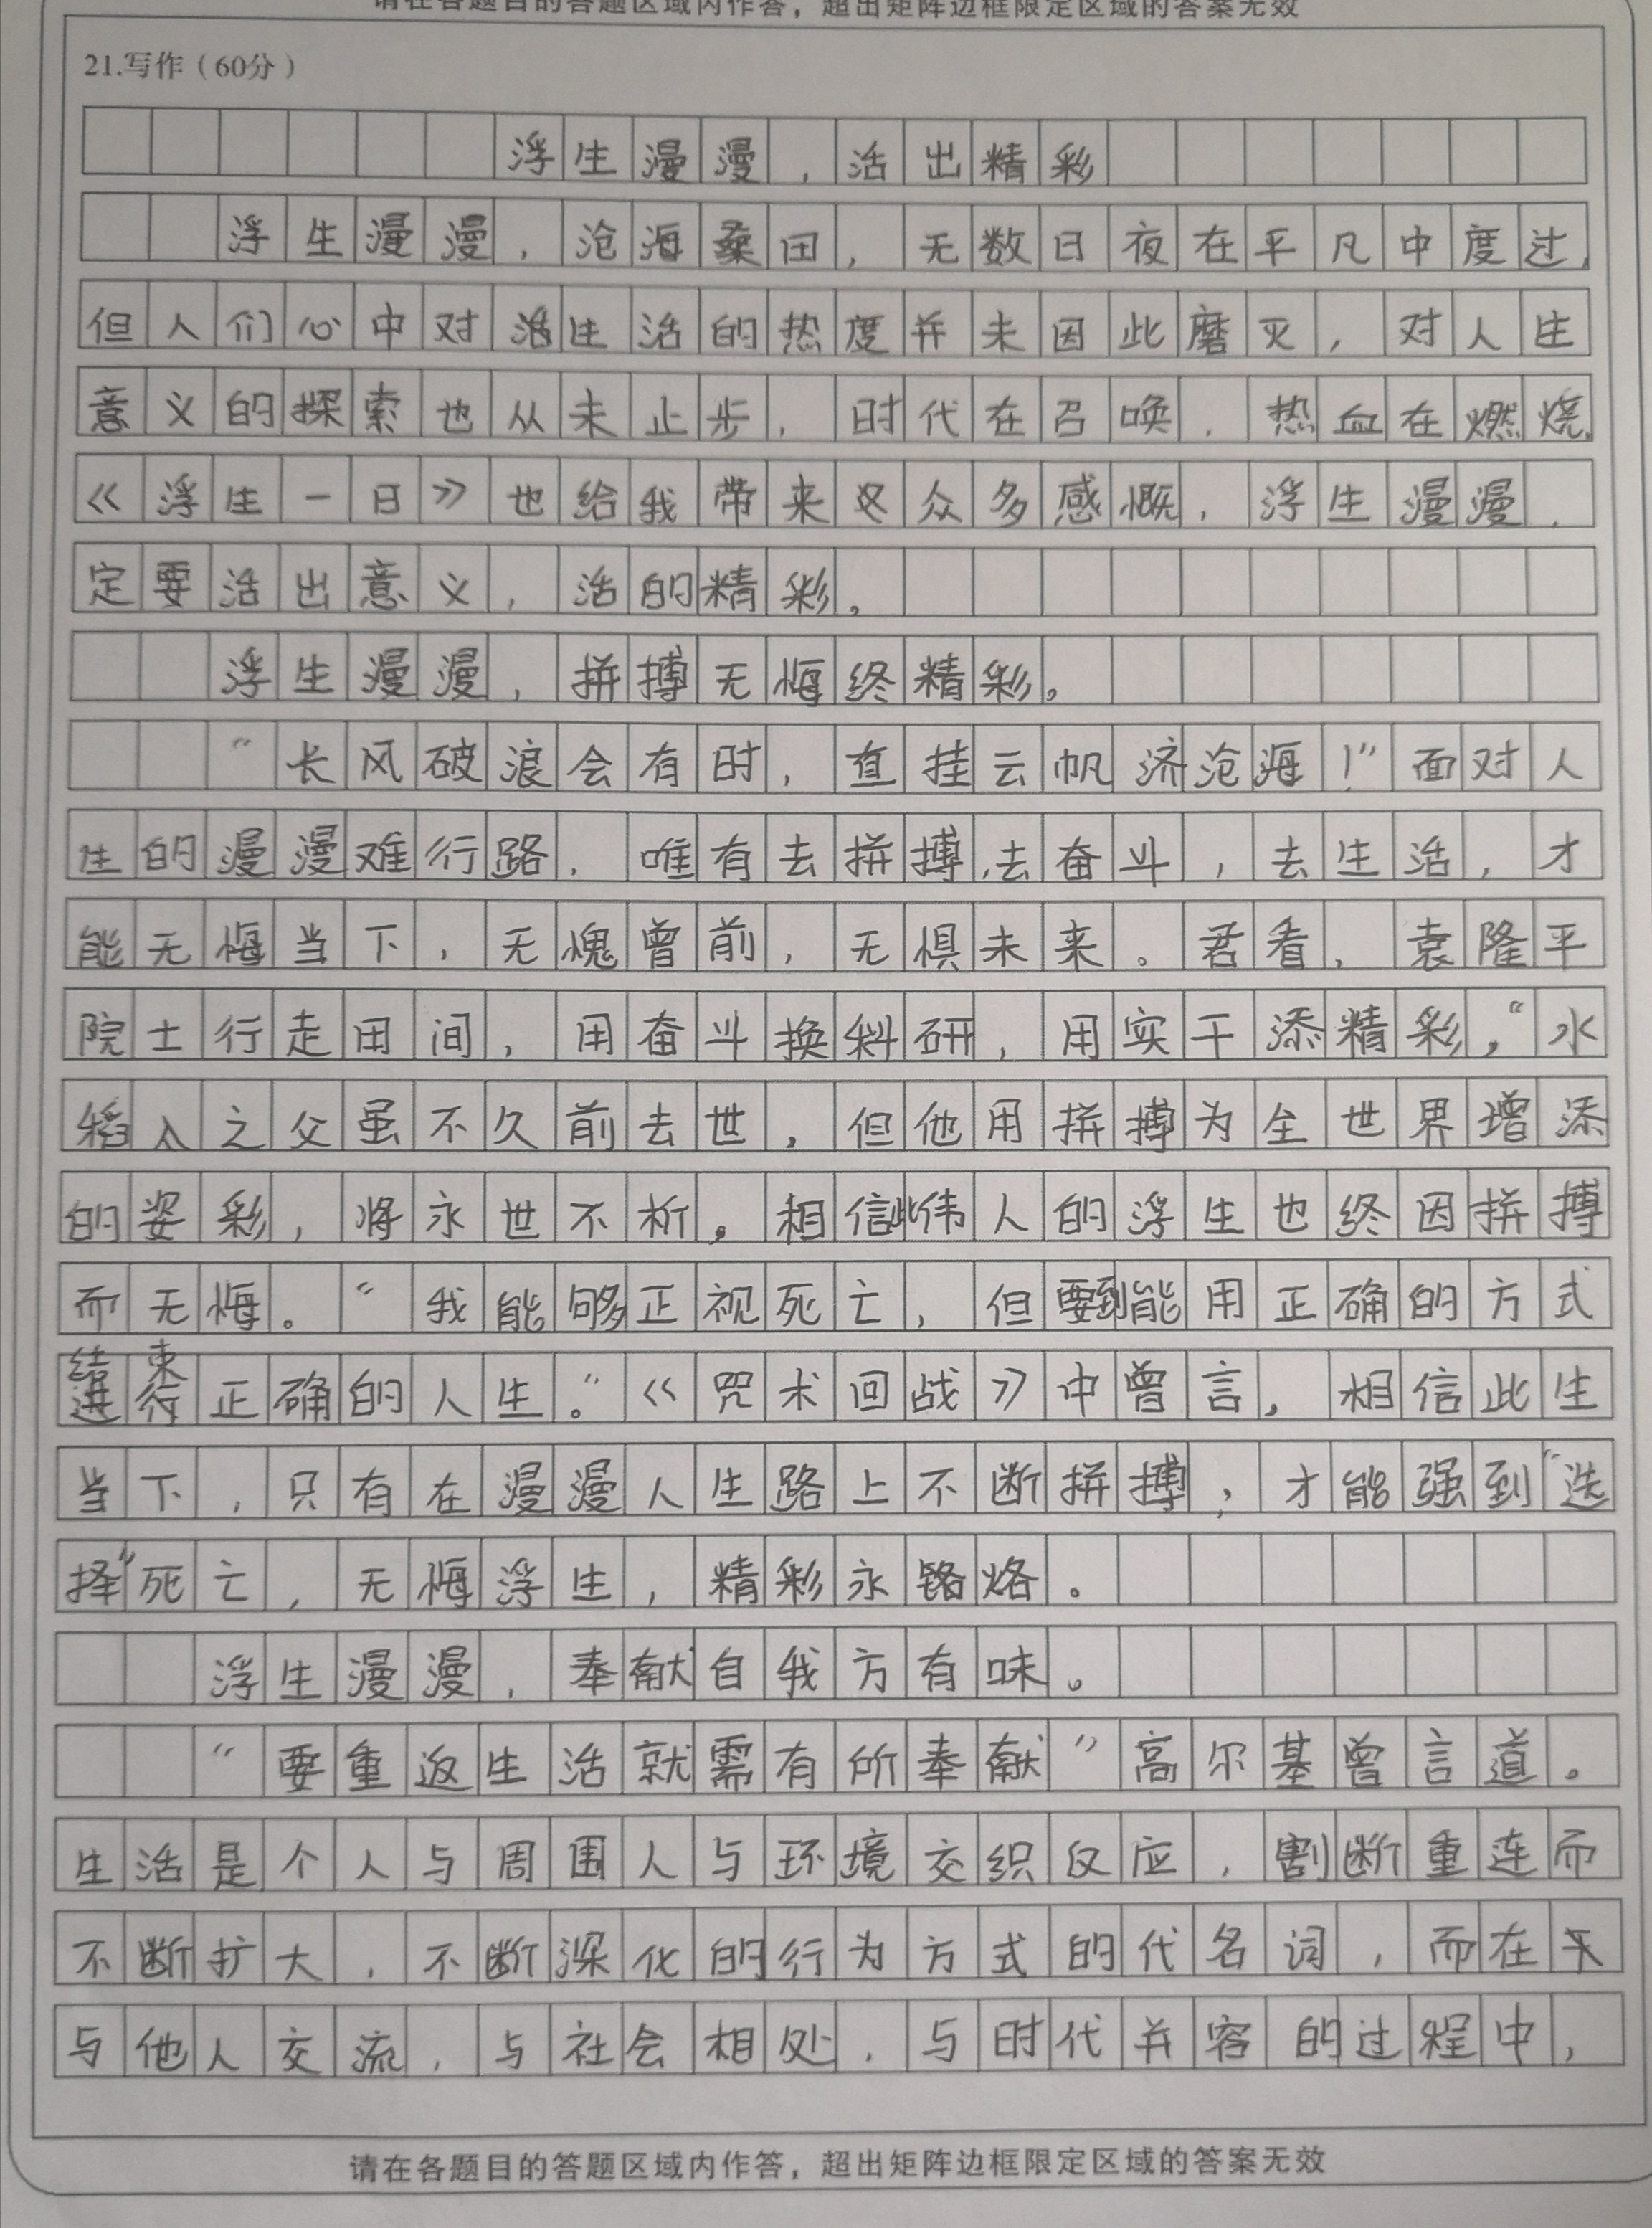 请在各题目的答题区域内作答，超出矩阵边框限定区域的答案无效
21.写作（60分）
浮生漫漫，活出精彩
浮生漫漫，沧海桑田，无数日夜在平凡中度过，
但人们心中对活生活的热度并未因此磨灭，对人生
意义的探索也从未止步，时代在召唤，热血在燃烧，
《浮生一日》也给我带来众多感慨，浮生漫漫，
定要活出意义，活的精彩。
浮生漫漫，拼搏无悔终精彩。
“长风破浪会有时，直挂云帆济沧海！”面对人
生的漫漫难行路，唯有去拼搏，去奋斗，去生活，才
能无悔当下，无愧曾前，无惧未来。君看，袁隆平
院士行走田间，用奋斗换科研，用实干添精彩，“水
稻之父虽不久前去世，但他用拼搏为全世界增添
的姿彩，将永世不析。相信此伟人的浮生也终因拼搏
而无悔。“我能够正视死亡，但要到能用正确的方式
结束正确的人生。”《咒术回战》中曾言，相信此生
当下，只有在漫漫人生路上不断拼搏，才能强到“选
择”死亡，无悔浮生，精彩永铭烙。
浮生漫漫，奉献自我方有味。
“要重返生活就需有所奉献”高尔基曾言道。
生活是个人与周围人与环境交织反应，割断重连而
不断扩大，不断深化的行为方式的代名词，而在
与他人交流，与社会相处，与时代并容的过程中，
请在各题目的答题区域内作答，超出矩阵边框限定区域的答案无效